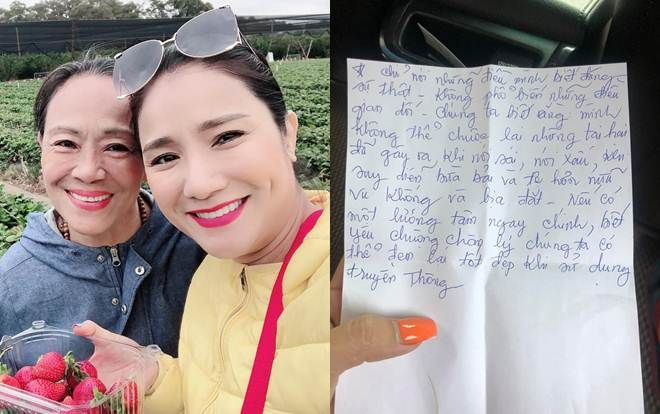 * chỉ nói những điều mình biết đúng
sự thật - không phổ biến những điều
gian dối - chúng ta biết rằng mình
không thể chuộc lại những tai hại
đã gây ra khi nói sai, nói xấu,
suy diễn bừa bãi và tệ hơn nữa
Vu khống và bịa đặt - Nếu có
một lương tâm ngay chính, biết
yêu chuộng chân lý chúng ta có
thể đem lại tốt đẹp khi sử dụng
truyền thông